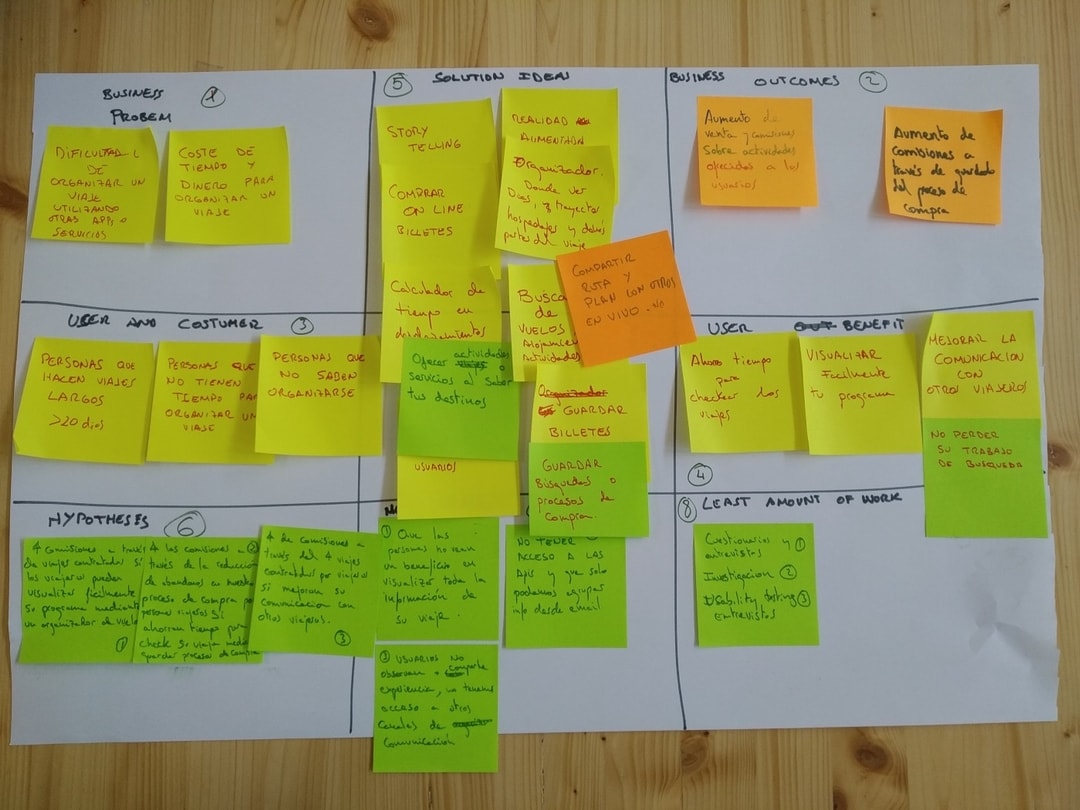 BUSINESS
PROBEM
1
DIFICULTAD
DE
ORGANIZAR UN
VIAJE
UTILIZANDO
OTRAS APPS o
SERVICIOS
COSTE DE
TIEMPO Y
DINERO PARA
ORGANIZAR UN
VIAJE
5
SOLUTION IDEAS
STORY
TELLING
REALIDAD
AUMENTADA
COMPRAR
ON LINE
BILLETES
Organizador.
Donde ver
Dias, y trayectos
hospedajes y demás
partes del viaje
Calculador de
tiempo en
desplazamientos
BUSCA
DE
VUELOS
Alojamientos
Actividades
COMPARTIR
RUTA Y
PLAN CON OTROS
EN VIVO. NO
Ofrecer actividades
o
servicios al saber
tus destinos
USUARIOS
Organizador
GUARDAR
BILLETES
GUARDAR
Búsquedas o
procesos de
Compra
BUSINESS OUTCOMES 2
Aumento de
venta y comisiones
Sobre actividades
ofrecidos a los
usuarios
Aumento de
comisiones a
través de guardado
del proceso de
Compra
USER AND COSTUMER 3
PERSONAS QUE
HACEN VIAJES
LARGOS
>20 dias
PERSONAS QUE
NO TIENEN
TIEMPO PARA
ORGANIZAR UN
VIAJE
PERSONAS QUE
NO SABEN
ORGANIZARSE
USER BENEFIT
Ahorro tiempo
para
checkear los
viajes
VISUALIZAR
Facilmente
tu programa
MEJORAR LA
COMUNICACION
CON
OTROS VIAJEROS
NO PERDER
SU TRABAJO
DE BUSQUEDA
4
HYPOTHESES 6
4 Comisiones a través
de viajes contratados si
los viajeros pueden
visualizar facilmente
su programa mediante
un organizador de vuelo
1
4 las comisiones a 2
través de la reducción
de abandono en nuestro
proceso de compra por
personas viajeros si
ahorran tiempo para
check su viaje
guardar procesos de compra
4 de comisiones a
través del 4 viajes
contratados por viajeros
si mejoran su
comunicacion con
otros viajeros.
3
1 Que las
personas no vean
un beneficio en
visualizar toda la
información de
su viaje.
NO TENER
ACCESO A LAS
APIs y que solo
podamos agrupar
info desde email
3 USUARIOS NO
comparta
experiencia, no tenemos
acceso a otros
Canales de
Comunicación
8 LEAST AMOUNT OF WORK
Cuestionarios y 1
entrevistas
Investigacion 2
Usability testing 3
ENTREVISTAS